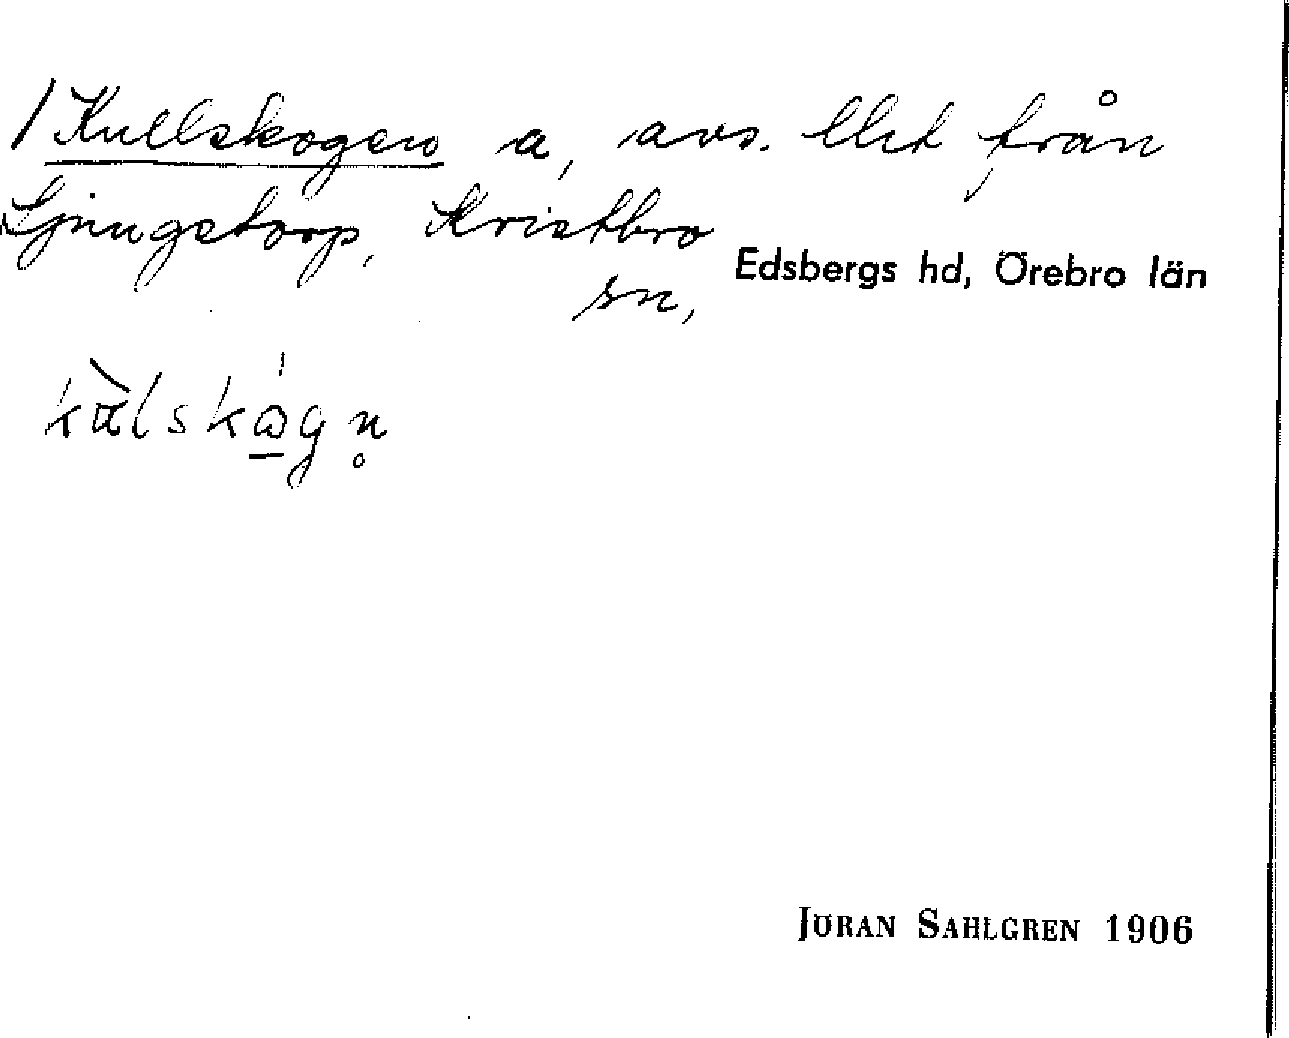 /Kullskogen a, avs. llet från
Ljungstorp, Kristbro
sn, Edsbergs hd, Örebro län
JÖRAN SAHLGREN 1906